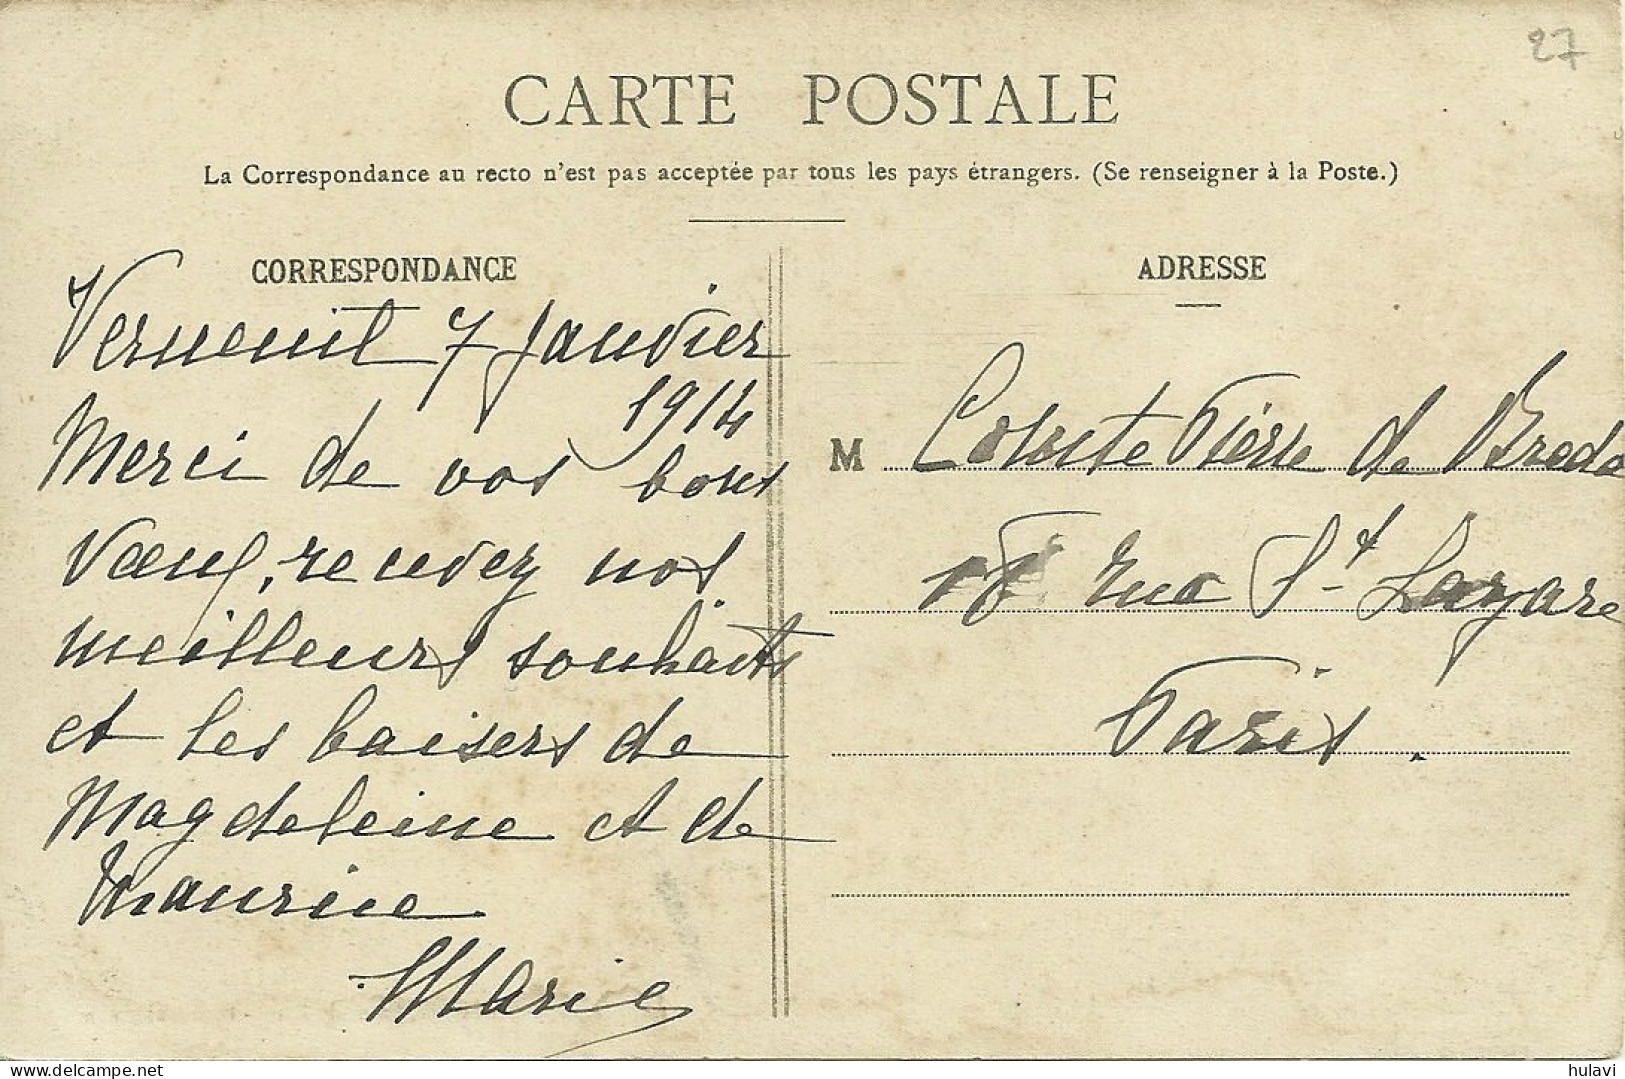 27
CARTE POSTALE
La Correspondance au recto n'est pas acceptée par tous les pays étrangers. (Se renseigner à la Poste.)
CORRESPONDANCE
Verneuil 7 Janvier
1914
Merci de vos bons
vœux, rendez nos
meilleurs souhaits
et les baisers de
Magdeleine et de
Maurice
Marie
ADRESSE
M Comte Pierre de Breda
18 rue St Lazare
Paris.
delcampe.net
hulavi